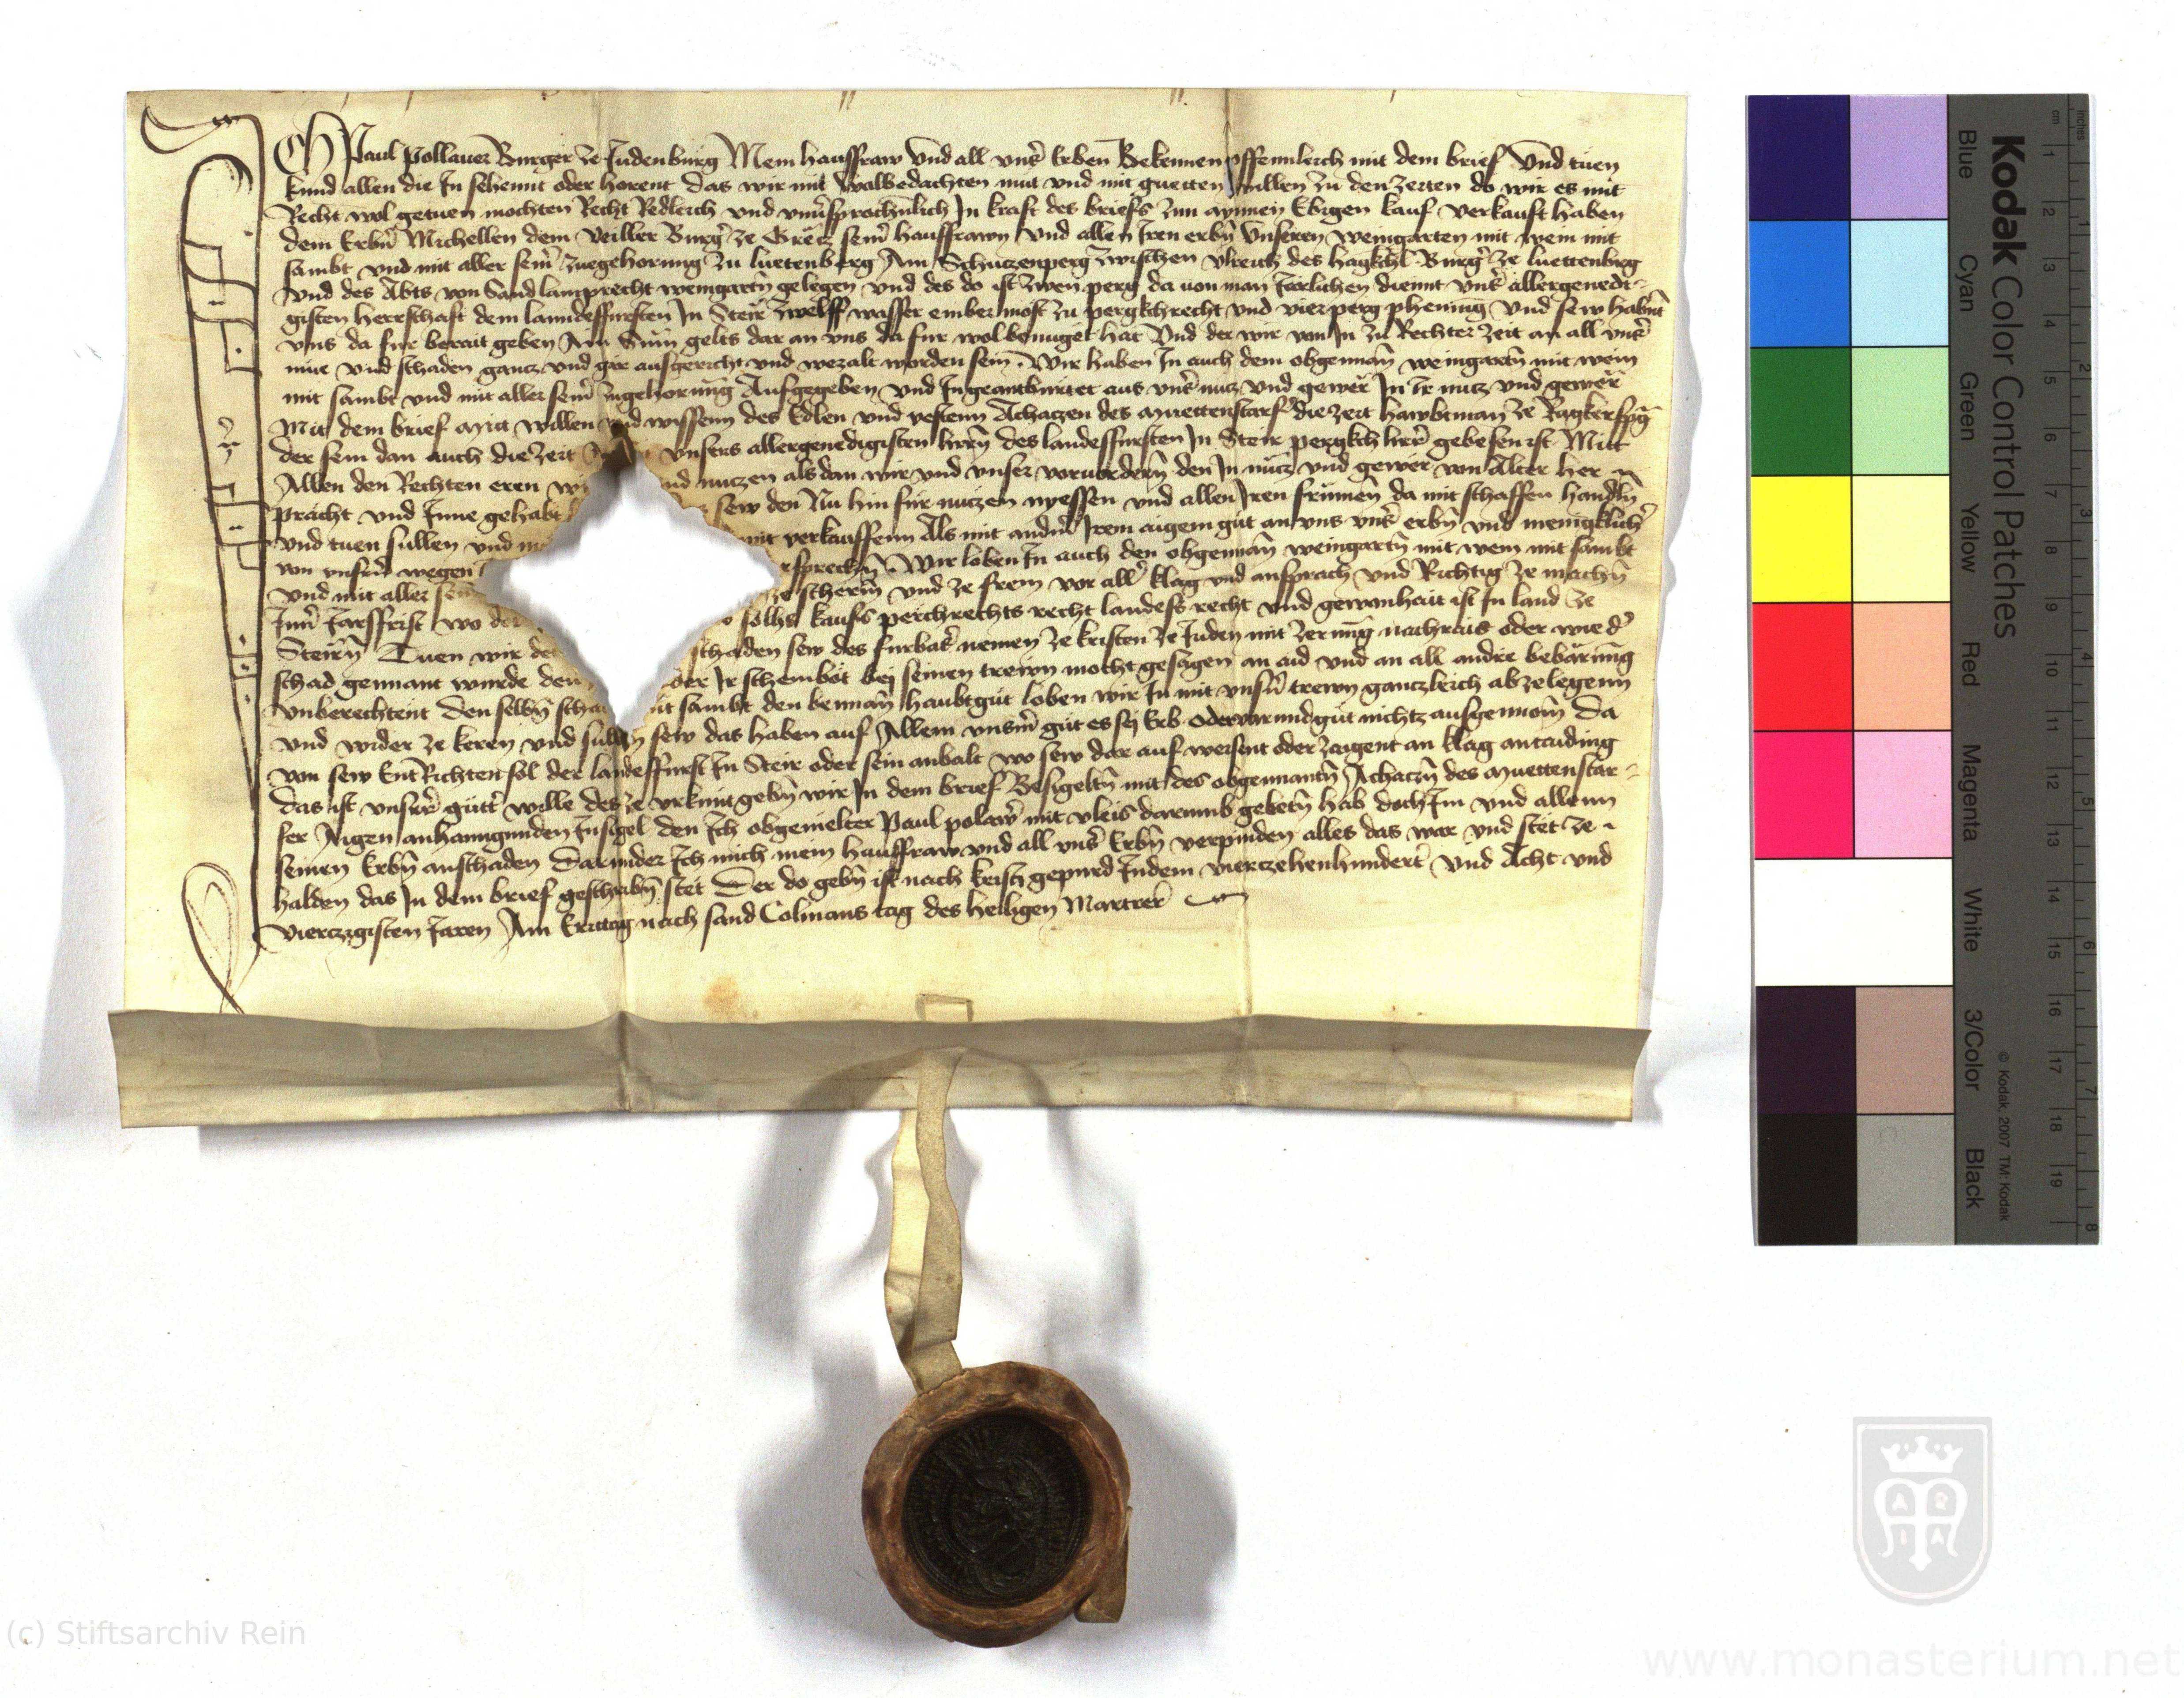 Ich Paul Pollauer Burger ze Judenburg Mein hausfraw vnd all vnser Erben Bekennen offennleich mit dem brief Vnd tuen
kund allen die In sehennt oder horent das wir mit wolbedachten mut vnd mit guetten willen zu den zeiten do wir es mit
Recht wol getuen mochten Recht Redleich vnd vnuersprochenlich In kraft des briefs zun aynnen Ebigen kauf verkauft haben
dem Erbern Michellen dem Veiller Burger ze Grecz seiner hausfrawn vnd allen Iren erbn vnseren weingarten mit wein mit
sambt vnd mit aller seiner zuegehorung zu luetenberg Am Schuczenperg zwischen vlreich des Burger ze luettenberg
vnd des Abts von Sand lamprecht weingartn gelegen vnd des do ist zwen perg da uon man Jarlichen diennt vnser allergenedi-
gisten herrschaft dem lanndesfursten In Steir zwelff wasser ember most zu pergkhrecht vnd vier perg phening Vnd sew habent
vns da fur berait geben Ain Sum gelts dar an vns da fur wol benuget hat Vnd der wir von In zu Rechter zeit an all vnser
mue vnd schaden gancz vnd gar ausgericht vnd wezalt worden sein Wir haben In auch dem obgennan weingartn mit wein
mit sambt vnd mit aller seiner zugehorung Aufgegeben vnd Ingeantwurtet aus vnser nucz vnd gewer In Ir nucz vnd gewer
Mit dem brief mit willen vnd wissenn des Edlen vnd vestenn Achaczen des muettenstarf die zeit hawbtman ze Ragkerspurg
der sein dan auch die zeit vnsers allergenedigisten hern des landesfursten In Steir pergkh herr gebesen ist Mitt
Allen den Rechten eren wi nd nuczen als dan wir vnd vnser voruordern den In nucz vnd gewer von Alter her
pracht vnd Inne gehabt sew den Nu hin fur nuczen nyessen vnd allen Iren frumen da mit schaffen handln
vnd tuen sullen vnd m mit verkauffenn Als mit andern Irem aigem gut an vns vnser erbn vnd menigklich
von vnsern wegen rsprechn Wir loben In auch den obgennan weingartn mit wein mit sambt
vnd mit aller sein ze scherm vnd ze frein vor aller klag vnd ansprach vnd Richtig ze machn
Inner Jarsfrist wo de solhs kaufs perchrechts recht landess recht vnd gewonhait ist In land ze
Steirn Tuen wir de schaden sew des furbas nemen ze kristen ze Juden mit zerung nachrais oder wie der
schad gennant wurde den oder Ir scheinbot bei seinen trewn mocht gesagen an aid vnd an all andre bebarung
vnberechtent den selbn scha it sambt den bennan haubtgut loben wir In mit vnsern trewn ganczleich abzelegenn
vnd wider ze keren vnd sullen sew das haben auf Allem vnserm gut es sej Erb oder varundgut nichtz ausgenomen Da
von sew EntRichten sol der landesfurst In Steir oder sein anbalt wo sew dar auf weisent oder zaigent an klag an taiding
das ist vnser gutter wille des ze vrkunt gebn wir In dem brief Besigeltn mit des obgenantn Achaczn des muettenstar-
fer Aigen anhanngunden Insigel den Ich obgemelter Paul polawer mit vleis darumb gebetn hab doch Im vnd allenn
seinen Erbn anschaden Darunder Ich mich mein hausfraw vnd all vnser Erbn verpinden alles das war vnd stet ze
halden das In dem brief geschribn stet Der do gebn ist nach kristz gepurd Indem vierczehenhundert vnd Acht vnd
vierczigisten Jaren Am Erittag nach sand Colmans tag des heiligen Martrer
Kodak Color Control Patches
Blue Cyan Green Yellow Red Magenta White 3/Color Black
© Kodak, 2007 TM: Kodak
inches 1 2 3 4 5 6 7 8
cm 1 2 3 4 5 6 7 8 9 10 11 12 13 14 15 16 17 18 19
(c) Stiftsarchiv Rein
www.monasterium.net